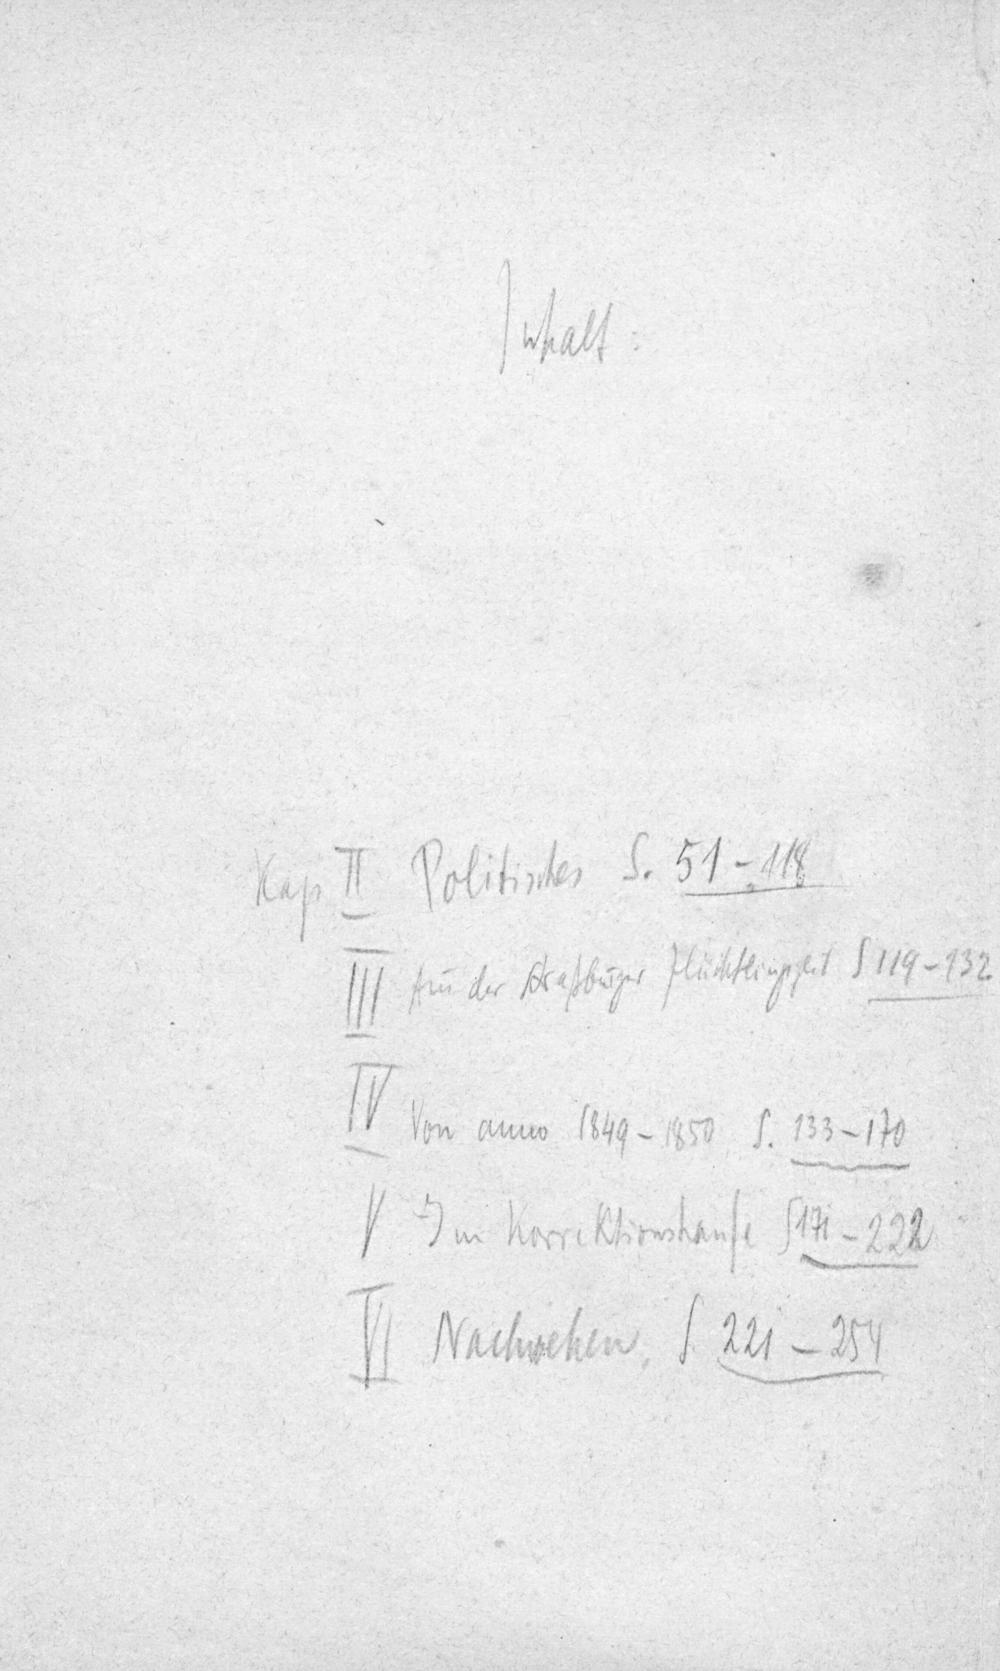 Inhalt:
Kap II Politisches S. 51-118
III Aus der Straßburger Flüchtlingszeit S 119-132
IV Von anno 1849-1850 S. 133-170
V Im Korrektionshause S 171-222
VI Nachwehen. S. 221-254